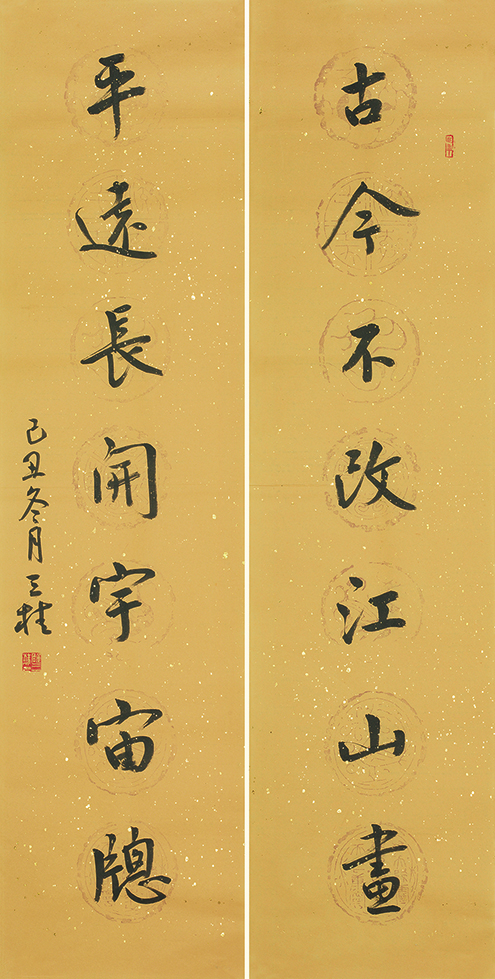 古今不改江山畫
平遠長開宇宙牕
己丑冬月三桂